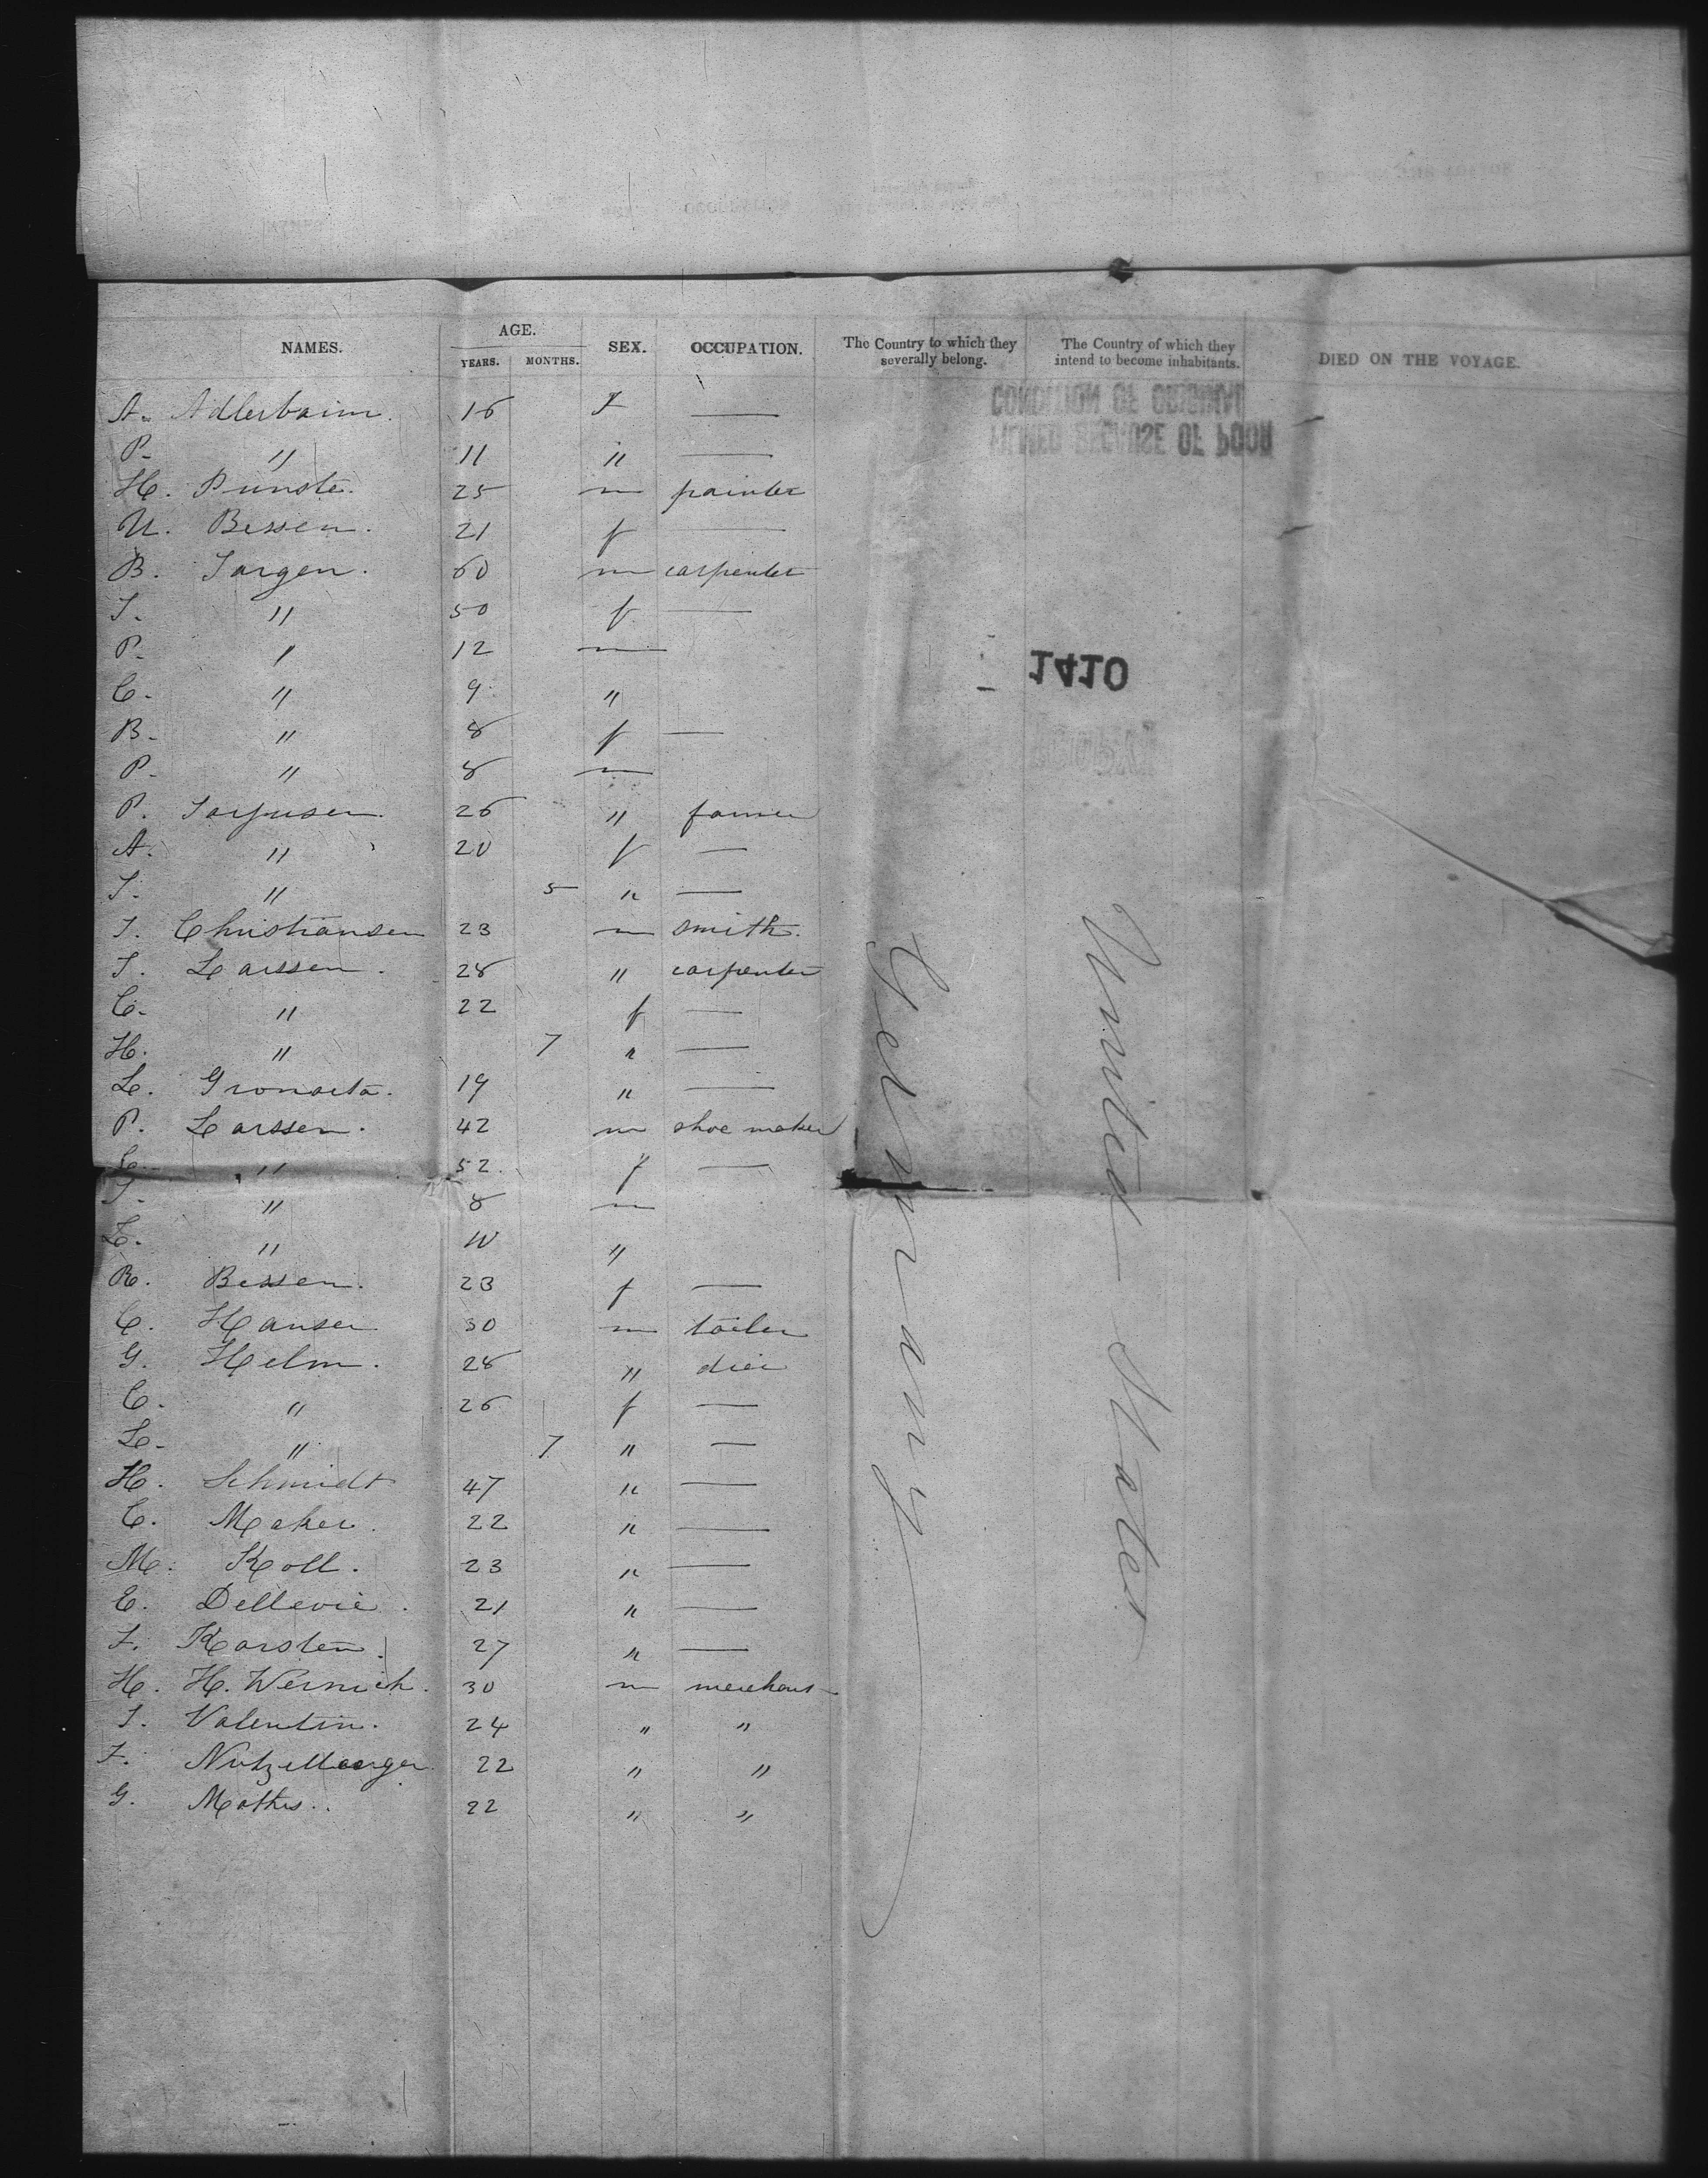 NAMES. AGE. YEARS. MONTHS. SEX. OCCUPATION. The Country to which they severally belong. The Country of which they intend to become inhabitants. DIED ON THE VOYAGE.
A. Adlerbaim. 16 f —
P. " 11 " —
H. Punste. 25 m painter
U. Bessen. 21 f —
B. Jorgen. 60 m carpenter
J. " 50 f —
P. " 12 m
C. " 9 "
B. " 8 f —
P. " 8 m
P. 26 " farmer
A. " 20 f —
J. " 5 " —
J. Christiansen 23 m smith.
J. Larssen. 28 " carpenter
C. " 22 f —
H. " 7 " —
L. 19 " —
P. Larssen. 42 m shoe maker
" 52 f —
J. " 8 m
L. " 10 "
R. Bessen. 23 f —
C. Hansen 30 m tailer
G. Helm. 28 " dier
C. " 26 f —
L. " 7 " —
H. Schmidt 47 " —
C. Maker. 22 " —
M. Koll. 23 " —
E. Dellevie. 21 " —
F. Karsten. 27 " —
H. H. Wernich. 30 m merchant
J. Valentin. 24 " "
F. 22 " "
G. Mathes.. 22 " "
Germany
United States
CONDITION OF ORIGINAL
FILMED BECAUSE OF POOR
1410